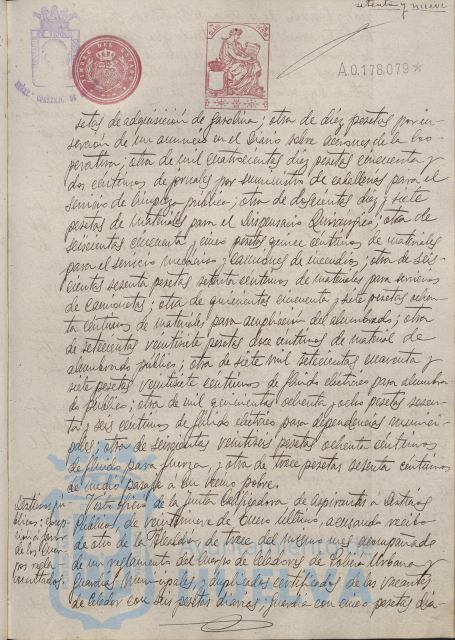 setenta y nueve
A.0.178.079*
setas de adquisición de gasolina; otra de diez pesetas por in-
serción de un anuncio en el Diario sobre acciones de la Coo-
perativa; otra de mil cuatrocientas diez pesetas cincuenta y
dos céntimos de jornales por suministro de caballerías para el
servicio de limpieza pública; otra de doscientas diez y siete
pesetas de materiales para el Dispensario Quirúrgico; otra de
seiscientas cincuenta y cinco pesetas quince céntimos de materiales
para el servicio mecánico, camiones de incendios; otra de seis-
cientas sesenta pesetas setenta céntimos de materiales para servicios
de camionetas; otra de quinientas cincuenta y siete pesetas ochen-
ta céntimos de materiales para ampliación del alumbrado; otra
de setecientas veintisiete pesetas doce céntimos de material de
alumbrado público; otra de siete mil setecientas cuarenta y
siete pesetas veintisiete céntimos de flúido eléctrico para alumbra-
do público; otra de mil quinientas ochenta y ocho pesetas sesen-
ta y seis céntimos de flúido eléctrico para dependencias munici-
pales; otra de seiscientas veintiseis pesetas ochenta céntimos
de flúido para fuerza, y otra de trece pesetas setenta céntimos
de medio pasaje a un obrero pobre.
Destinos pú-
blicos:
de los
por regla-
mentados.
Visto oficio de la Junta Calificadora de Aspirantes á Destinos
Públicos, de veintinueve de Enero último, acusando recibo
de otro de la Alcaldía, de trece del mismo mes acompañado
de un reglamento del Cuerpo de Celadores de Policía Urbana y
Guardias Municipales, y duplicados certificados de las vacantes
de Celador con seis pesetas diarias, Guardia con cinco pesetas dia-
Ayuntamiento de
HUELVA